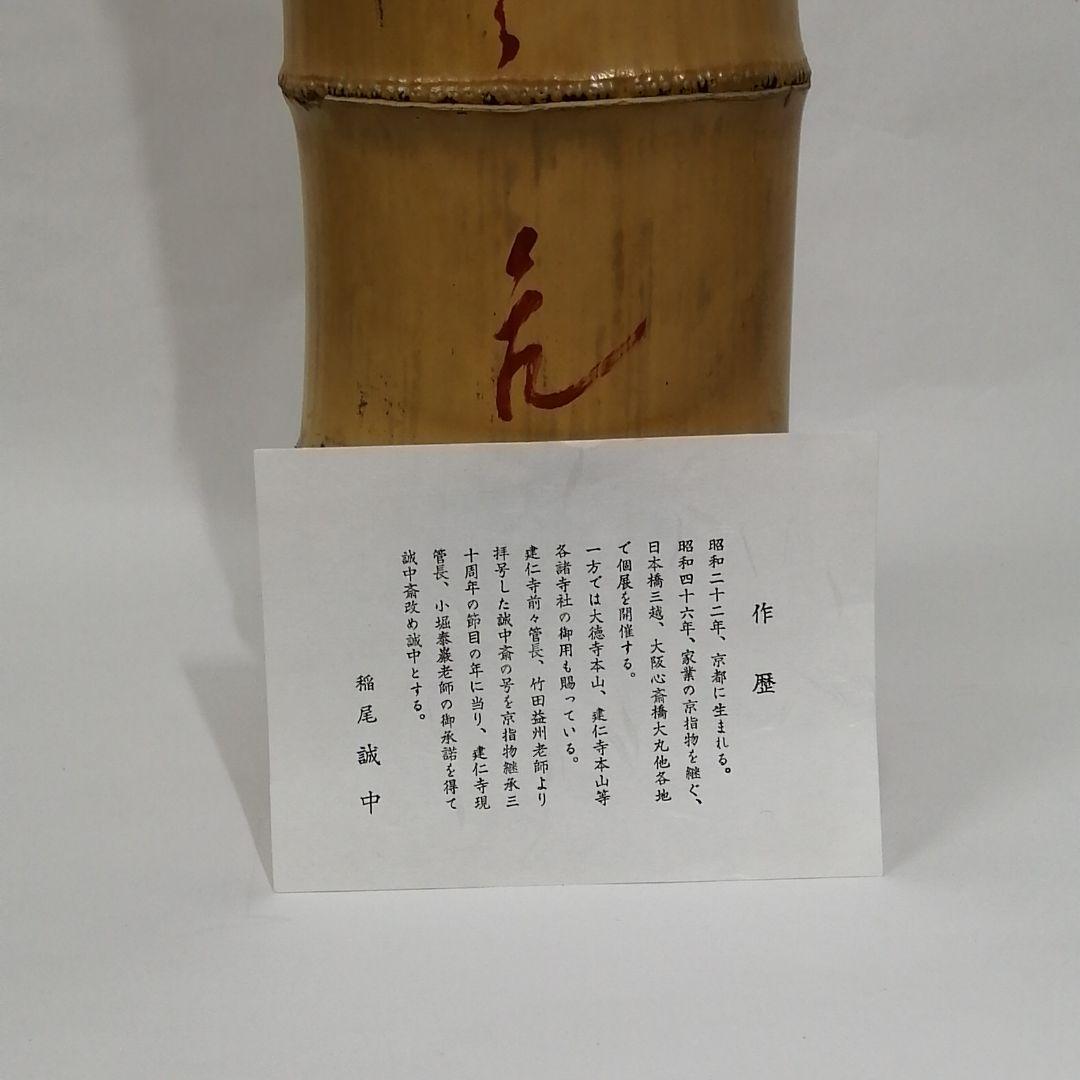 作歴
昭和二十二年、京都に生まれる。
昭和四十六年、家業の京指物を継ぐ、
日本橋三越、大阪心斎橋大丸他各地
で個展を開催する。
一方では大徳寺本山、建仁寺本山等
各諸寺社の御用も賜っている。
建仁寺前々管長、竹田益州老師より
拝号した誠中斎の号を京指物継承三
十周年の節目の年に当り、建仁寺現
管長、小堀泰巖老師の御承諾を得て
誠中斎改め誠中とする。
稲尾誠中